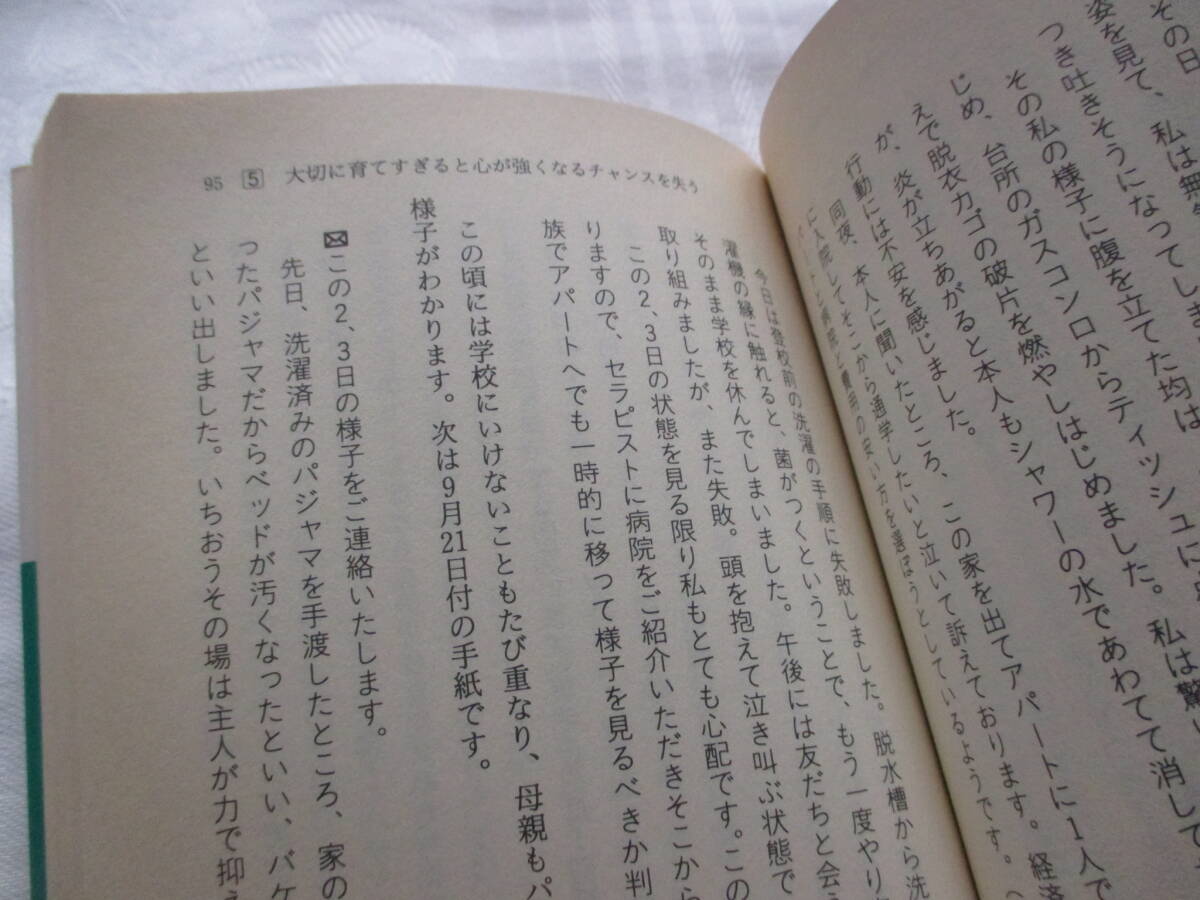 その日、私は無
姿を見て、
つき吐きそうになってしま
その私の様子に腹を立てた均は、
じめ、台所のガスコンロからティッシュに
えで脱衣カゴの破片を燃やしはじめました。私は驚
が、炎が立ちあがると本人もシャワーの水であわてて消して
行動には不安を感じました。
同夜、本人に聞いたところ、この家を出てアパートに1人で
に入院してそこから通学したいと泣いて訴えております。経済
と病院と費用の安い方を選ぼうとしているようです。
95 5 大切に育てすぎると心が強くなるチャンスを失う
今日は登校前の洗濯の手順に失敗しました。脱水槽から洗
濯機の縁に触れると、菌がつくということで、もう一度やり
そのまま学校を休んでしまいました。午後には友だちと会う
取り組みましたが、また失敗。頭を抱えて泣き叫ぶ状態で
この2、3日の状態を見る限り私もとても心配です。この
りますので、セラピストに病院をご紹介いただきそこから
族でアパートへでも一時的に移って様子を見るべきか判
この頃には学校にいけないこともたび重なり、母親もパ
様子がわかります。次は9月21日付の手紙です。
この2、3日の様子をご連絡いたします。
先日、洗濯済みのパジャマを手渡したところ、家の
ったパジャマだからベッドが汚くなったといい、バケ
といい出しました。いちおうその場は主人が力で抑え